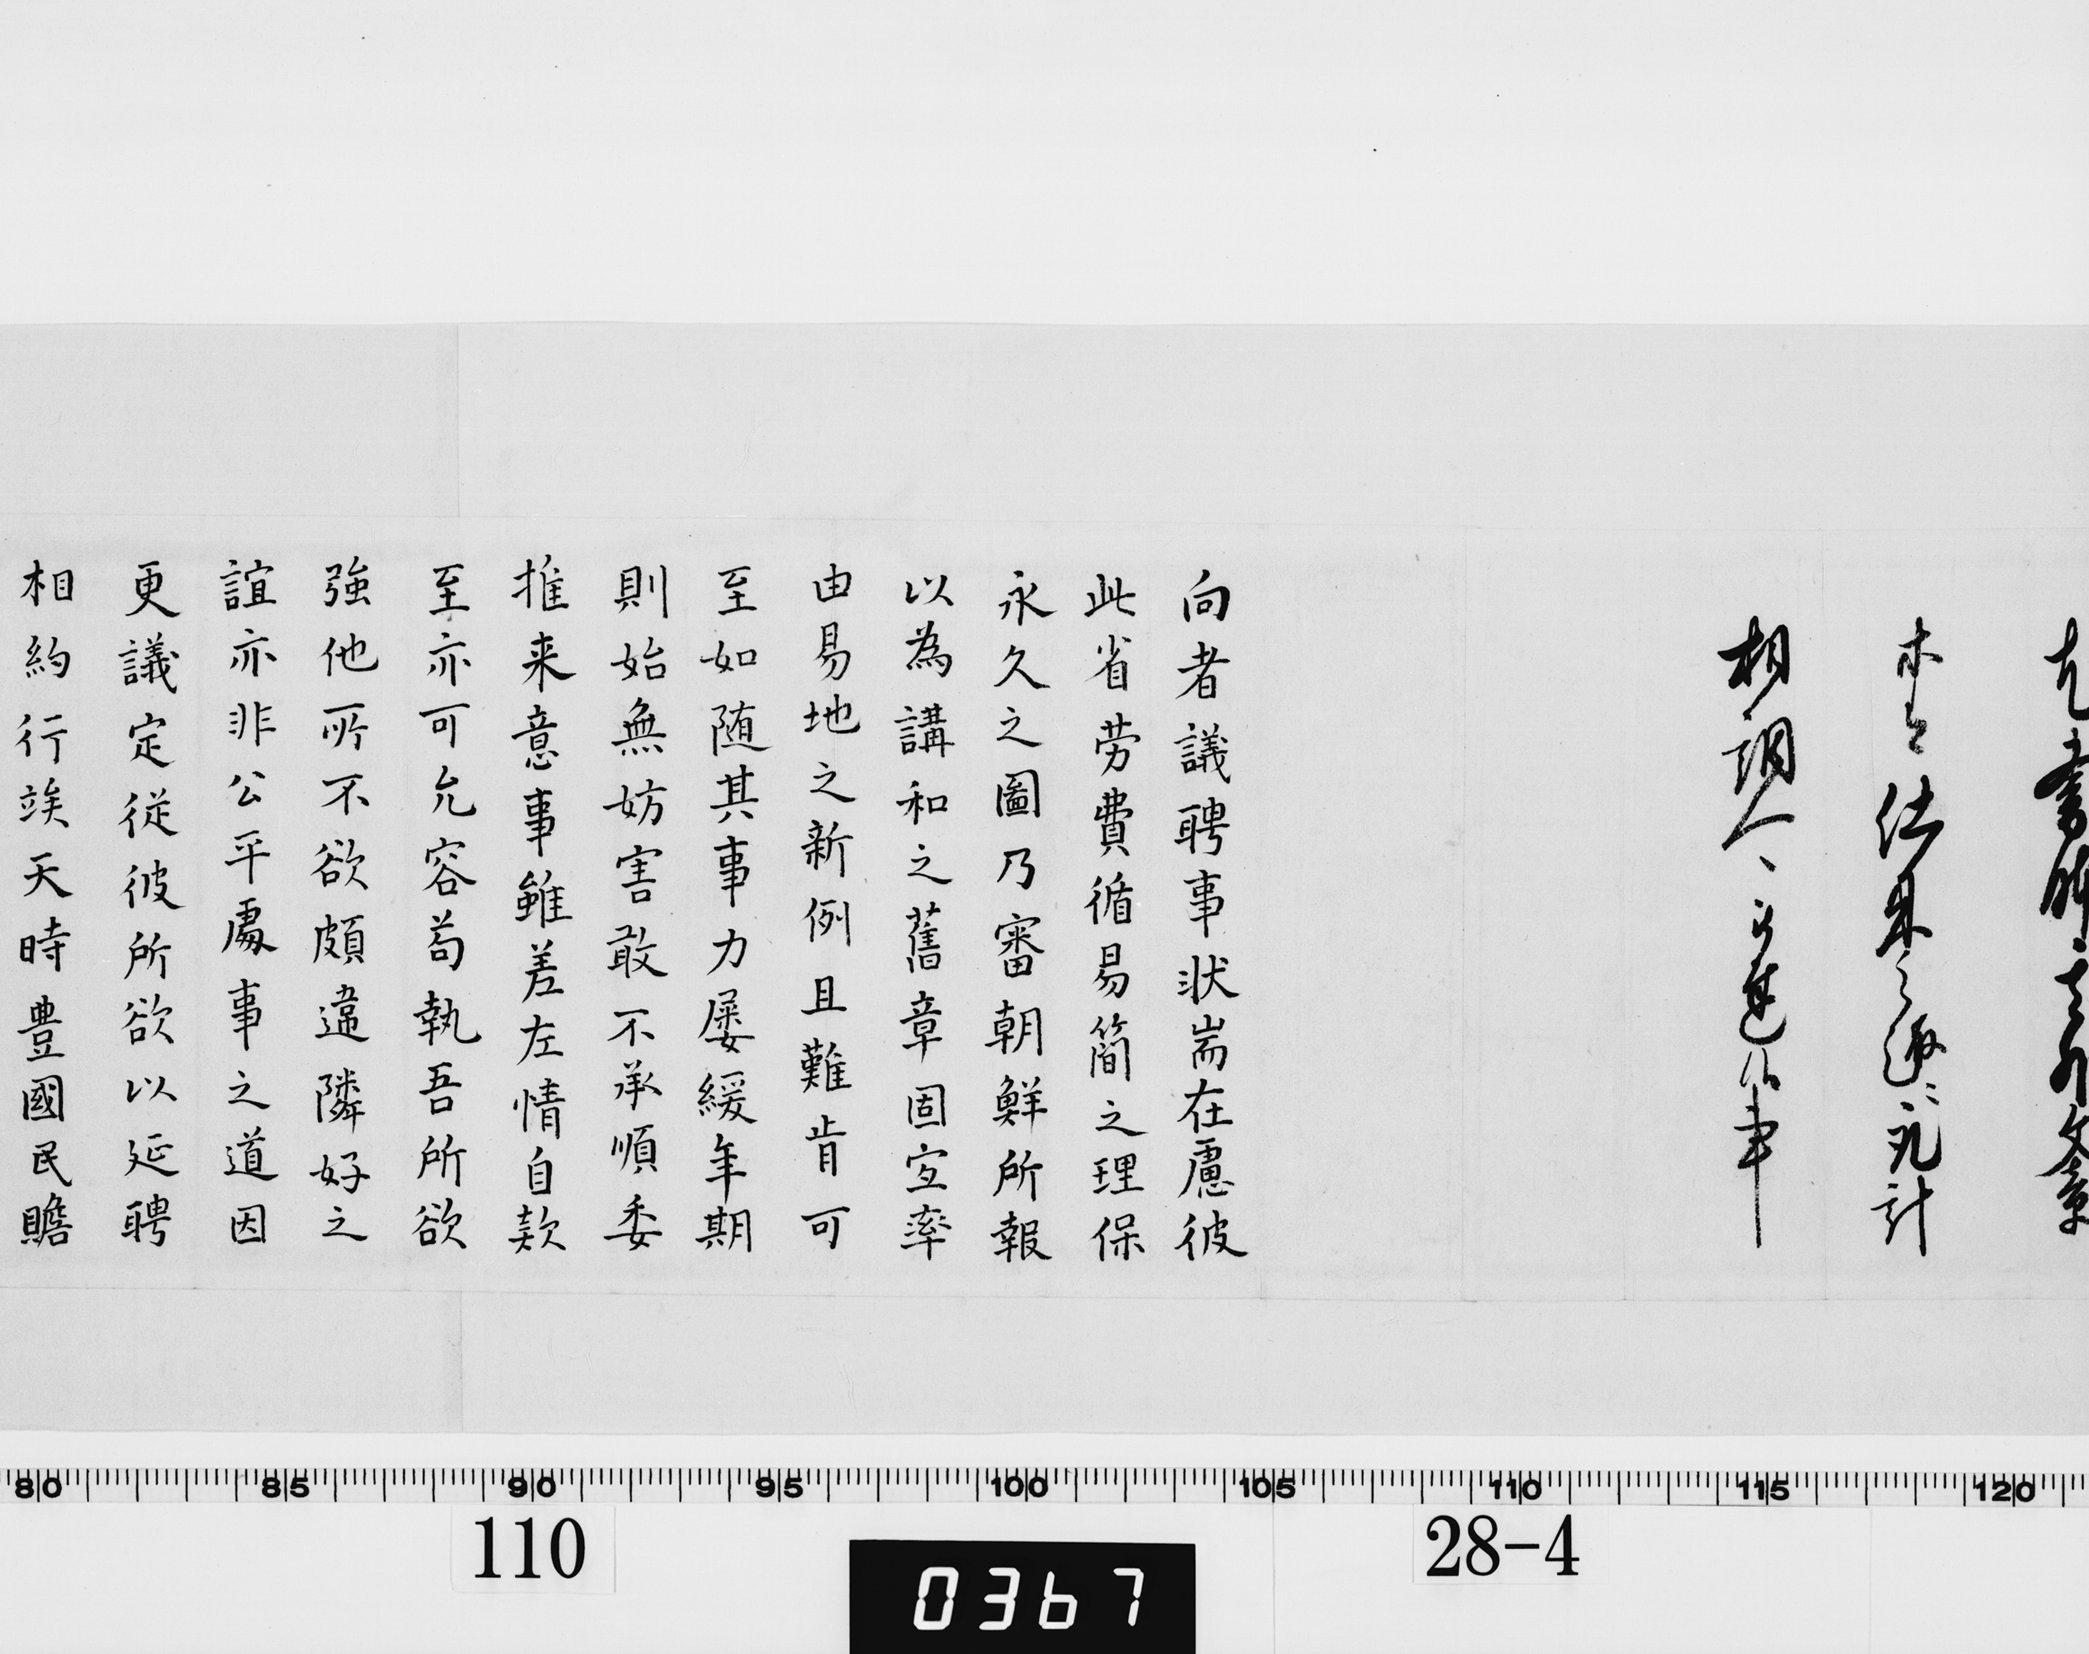 相調候
向者議聘事状耑在慮彼
此省労費循易簡之理保
永久之圖乃審朝鮮所報
以為講和之舊章固宜率
由易地之新例且難肯可
至如随其事力屡緩年期
則始無妨害敢不承順委
推来意事雖差左情自款
至亦可允容苟執吾所欲
強他所不欲頗違隣好之
誼亦非公平處事之道因
更議定従彼所欲以延聘
相約行竢天時豊國民贍
80 85 90 95 100 105 110 115 120
110
28-4
0367